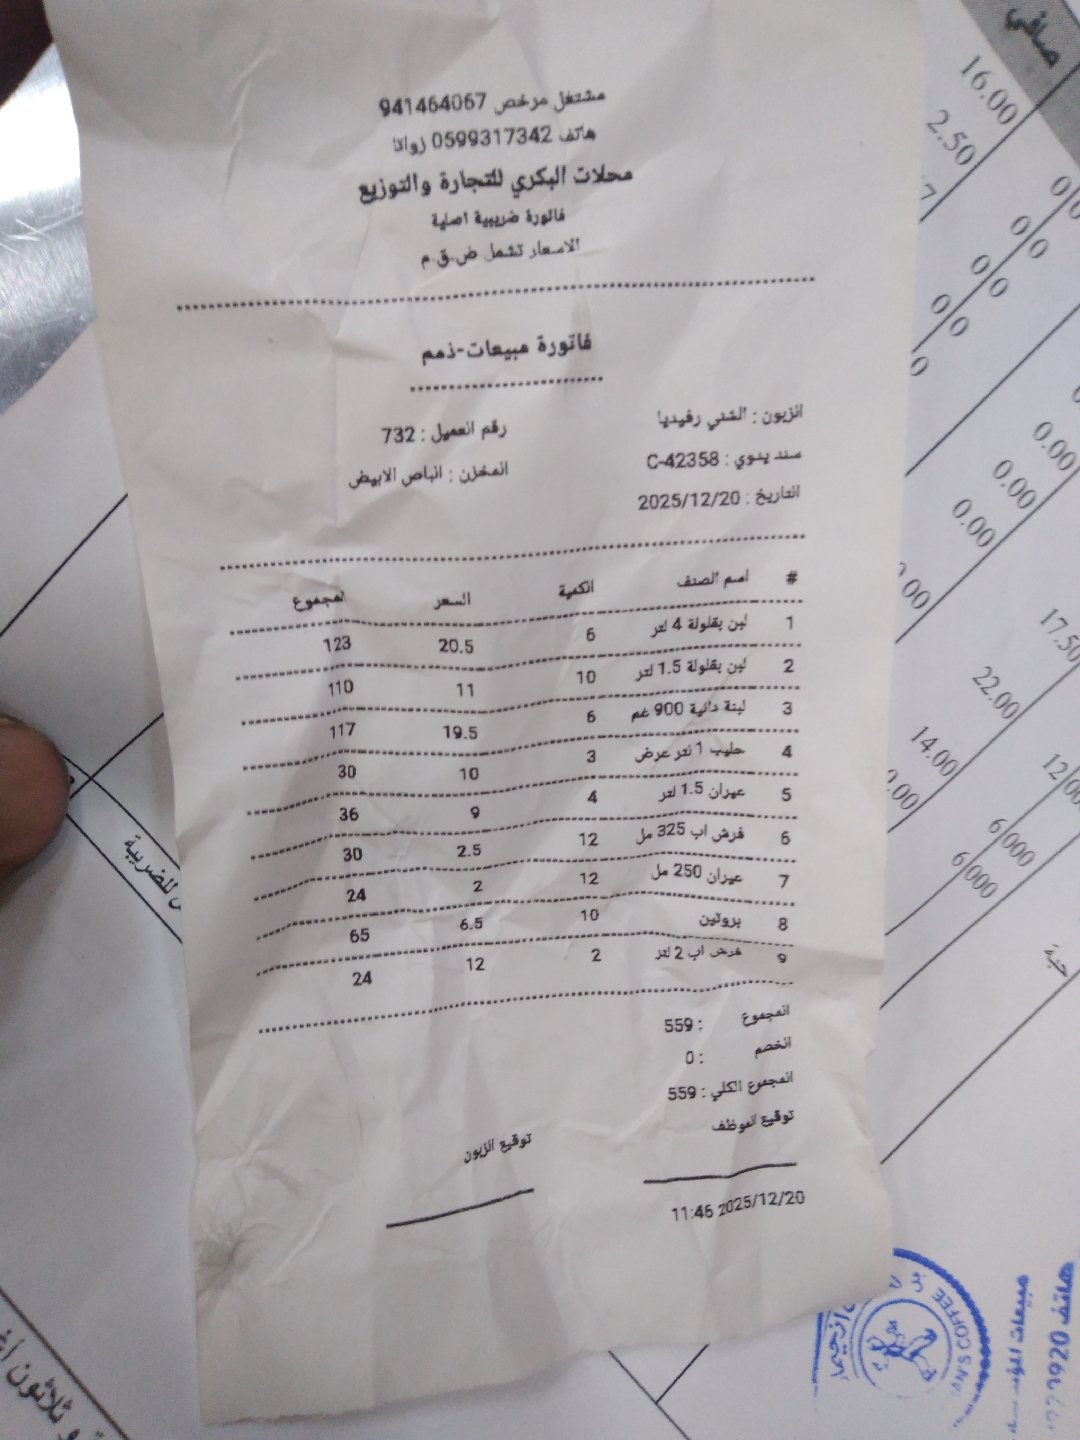 مشتغل مرخص 941464067
هاتف 0599317342 زواتا
محلات البكري للتجارة والتوزيع
فاتورة ضريبية اصلية
الاسعار تشمل ض.ق.م
فاتورة مبيعات-ذمم
الزبون : الشني رفيديا
رقم العميل : 732
سند يدوي : C-42358
المخزن : الباص الابيض
التاريخ : 2025/12/20
# اسم الصنف الكمية السعر المجموع
1 لبن بقلولة 4 لتر 6 20.5 123
2 لبن بقلولة 1.5 لتر 10 11 110
3 لبنة دانية 900 غم 6 19.5 117
4 حليب 1 لتر عرض 3 10 30
5 عيران 1.5 لتر 4 9 36
6 فرش اب 325 مل 12 2.5 30
7 عيران 250 مل 12 2 24
8 بروتين 10 6.5 65
9 فرش اب 2 لتر 2 12 24
المجموع : 559
الخصم : 0
المجموع الكلي : 559
توقيع الموظف
توقيع الزبون
11:46 2025/12/20
صافي
16.00
2.50
0.00
0.00
0.00
17.50
22.00
14.00
12
6 000
6 000
حبة
للضريبة
و ثلاثون
COFFEE
مبيعات
هاتف